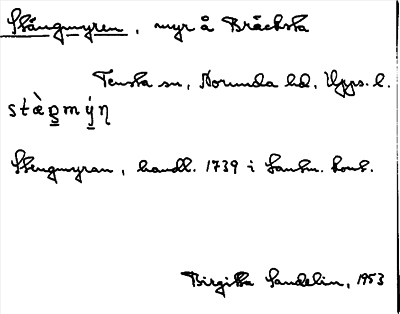 Stångmyren, myr å Bräcksta
Tensta sn, Norunda hd, Upps. l.
Stengmyran, handl. 1739 i Lantm. kont.
Birgitta Sandelin, 1953